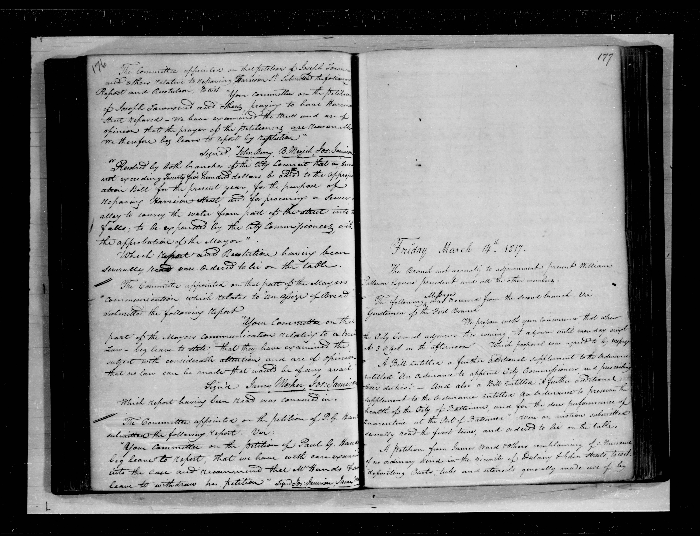 176
The Committee appointed on the petition of Joseph Townsend
and others relative to repairing Harrison St. Submitted the following
Report and Resolution Viz.
"Your committee on the petition
of Joseph Townsend and others praying to have Harrison
Street repaired – We have examined the and are of
opinion that the prayer of the Petitioners are Reasonable
We therefore beg leave to report by resolution"
Signed
"Resolved by both branches of the City Council that a sum
not exceeding Twenty five hundred dollars be added to the appropri
ation Bill for the present year, for the purpose of
repairing Harrison street, and for procuring a Sewer or
alley to convey the water from said street into the
falls, to be expended by the City Commissioners with
the approbation of the Mayor"
Which Report and Resolution having been
severally read was ordered to lie on the table.
The Committee appointed on that part of the Mayors
Communication which relates to an Assize of Bread
submitted the following Report
"Your Committee on that
part of the Mayors Communication relating to a
Law – beg leave to state that they have examined the
subject with considerable attention and are of opinion
that no Law can be made that would be of any avail
Signed James Mosher
Which report having been read was concurred in.
The Committee appointed on the petition of P. G. Hands
submitted the following report Viz.
"Your Committee on the petition of Paul G. Hands
beg leave to report, that we have with care examined
into the case and recommend that Mr Hands have
leave to withdraw his petition" Signed
177
Friday March 14th 1817.
The Branch met agreeably to adjournment present William
Esquire president and all the other members.
The following Message was received from the second branch Viz
Gentlemen of the First Branch
We propose with your concurrence that when
the City Council adjourns this evening it adjourns until monday next
at 3 o'clock in the afternoon Which proposal was agreed to by message
A Bill entitled a further additional Supplement to the Ordinance
entitled An Ordinance to appoint City Commissioners and prescribing
their duties – And also a Bill entitled A further additional
supplement to the Ordinance entitled An Ordinance to preserve the
health of the City of Baltimore and for the due performance of
Quarantine at the Port of Baltimore were on motion submitted
severally read the first time, and ordered to lie on the table.
A petition from James Ward &amp; others complaining of a Nuisance